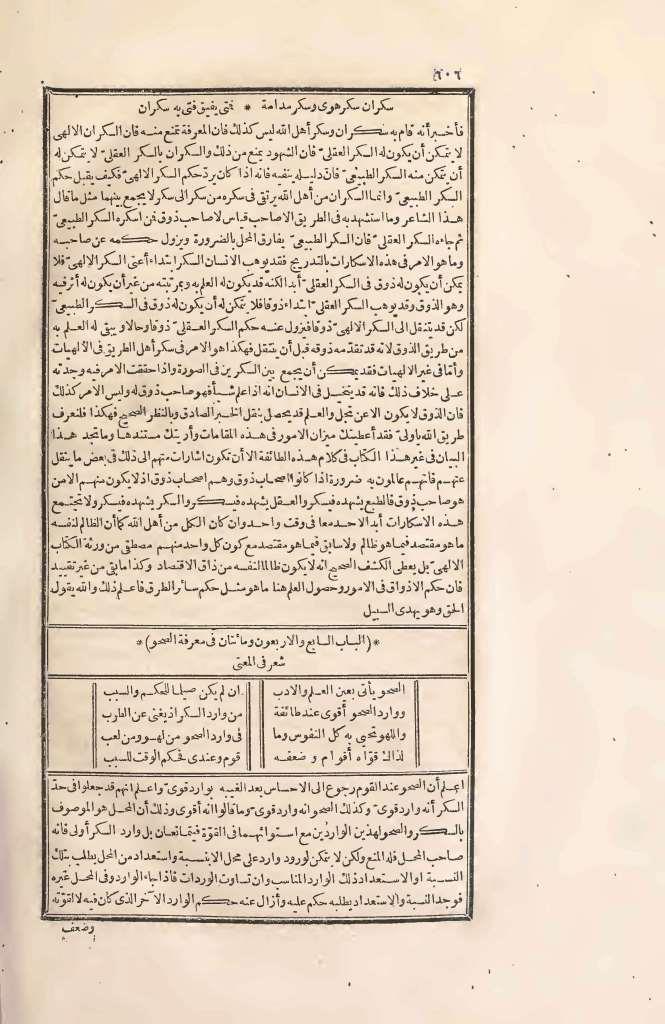 ٦٠٦
سكران سكر هوى وسكر مدامة * فتى يفيق فتى به سكران
فأخبر أنه قام به سكران وسكر أهل الله ليس كذلك فان المعرفة تمنع منه فان السكران الالهى
لا يتمكن أن يكون له السكر العقلى فان الشهود يمنع من ذلك والسكران بالسكر العقلى لا يتمكن له
أن يتمكن منه السكر الطبيعى فان دليله ينفيه فانه اذا كان يردّ حكم السكر الالهى فكيف يقبل حكم
السكر الطبيعى وانما السكران من أهل الله يرتقى فى سكره من سكر الى سكر لا يجمع بينهما مثل ما قال
هذا الشاعر وما استشهد به فى الطريق الا صاحب قياس لا صاحب ذوق فمن أسكره السكر الطبيعى
ثم جاءه السكر العقلى فان السكر الطبيعى يفارق المحل بالضرورة ويزول حكمه عن صاحبه
وما هو الامر فى هذه الاسكارات بالتدريج فقد يوهب الانسان السكر ابتداء أعنى السكر الالهى فلا
يمكن أن يكون له ذوق فى السكر العقلى أبدا لكنه قد يكون له العلم به وبمرتبته من غير أن يكون له أثر فيه
وهو الذوق وقد يوهب السكر العقلى ابتداء ذوقا فلا يتمكن له أن يكون له ذوق فى السكر الطبيعى
لكن قد يتنقل الى السكر الالهى ذوقا فيزول عنه حكم السكر العقلى ذوقا وحالا ويبقى له العلم به
من طريق الذوق لانه قد تقدّمه ذوقه قبل أن ينتقل فهكذا هو الامر فى سكر أهل الطريق فى الالهيات
وأمّا فى غير الالهيات فقد يمكن أن يجمع بين السكرين فى الصورة واذا حققت الامر فيه وجدته
على خلاف ذلك فانه قد يتخيل فى الانسان انه اذا علم شيأ فهو صاحب ذوق له وليس الامر كذلك
فان الذوق لا يكون الا عن تجل والعلم قد يحصل بنقل الخبر الصادق وبالنظر الصحيح فهكذا فلتعرف
طريق الله يا ولى فقد أعطيتك ميزان الامور فى هذه المقامات وأريتك مستندها وما تجد هذا
البيان فى غير هذا الكتاب فى كلام هذه الطائفة الا أن تكون اشارات منهم الى ذلك فى بعض ما ينقل
عنهم فانهم عالمون به ضرورة اذا كانوا أصحاب ذوق وهم اصحاب ذوق اذ لا يكون منهم الا من
هو صاحب ذوق فالطبع يشهده فيسكر والعقل يشهده فيسكر والسكر يشهده فيسكر ولا تجتمع
هذه الاسكارات أبدا لاحد معا فى وقت واحد وان كان الكل من أهل الله كما أن الظالم لنفسه
ما هو مقتصد فيما هو ظالم ولا سابق فيما هو مقتصد مع كون كل واحد منهم مصطفى من ورثة الكتاب
الالهى بل يعطى الكشف الصحيح انه لا يكون ظالما لنفسه من ذاق الاقتصاد وكذا ما بقى من غير تقييد
فان حكم الاذواق فى الامور وحصول العلم هنا ما هو مثل حكم سائر الطرق فاعلم ذلك والله يقول
الحق وهو يهدى السبيل
*(الباب السابع والاربعون ومائتان فى معرفة الصحو)*
شعر فى المعنى
الصحو يأتى بعين العلم والادب
ان لم يكن صيلم للحكم والسبب
ووارد الصحو أقوى عند طائفة
من وارد السكر اذ يغنى عن الطرب
واللهو تحيى به كل النفوس وما
فى وارد الصحو من لهو ومن لعب
لذاك قوّاه أقوام وضعفه
قوم وعندى فحكم الوقت للسبب
اعلم أن الصحو عند القوم رجوع الى الاحساس بعد الغيبه بوارد قوى واعلم انهم قد جعلوا فى حدّ
السكر أنه وارد قوى وكذلك الصحو انه وارد قوى وما قالوا انه أقوى وذلك أن المحل هو الموصوف
بالسكر والصحو لهذين الواردين مع استوائهما فى القوّة فيتمانعان بل وارد السكر أولى فانه
صاحب المحل فله المنع ولكن لا يتمكن لورود وارد على محل الا بنسبة واستعداد من المحل يطلب بتلك
النسبة او الاستعداد ذلك الوارد المناسب وان تساوت الوردات فاذا جاء الوارد وفى المحل غيره
فوجد النسبة والاستعداد يطلبه حكم عليه وأزال عنه حكم الوارد الآخر الذى كان فيه لا لقوّته
وضعف